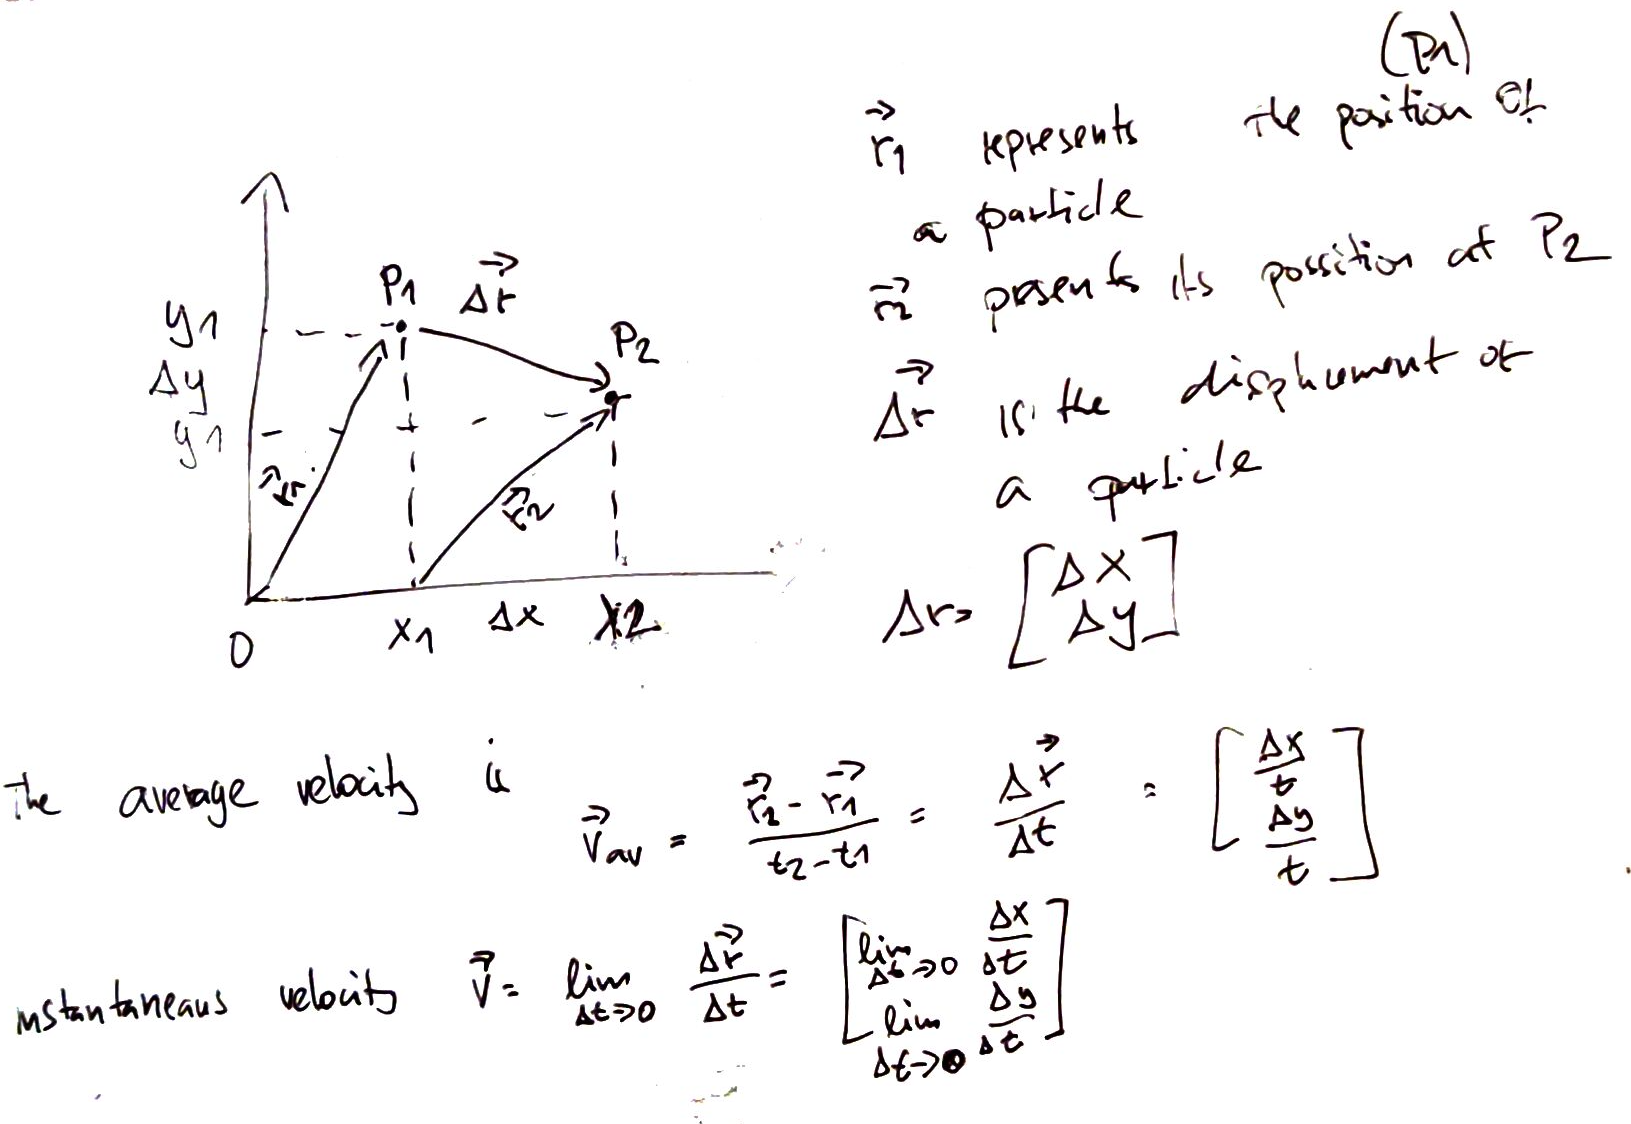 (P1)
r⃗1 represents the position of
a particle
r⃗2 presents its possition at P2
Δr⃗ is the displacement of
a particle
Δr = [Δx
Δy]
P1 Δr⃗
y1
P2
Δy
y1
r⃗1
r⃗2
0 x1 Δx x2
The average velocity is
v⃗av = (r⃗2 - r⃗1)/(t2 - t1) = Δr⃗/Δt = [Δx/t
Δy/t]
instantaneaus velocity v⃗ = lim Δt→0 Δr⃗/Δt = [lim Δt→0 Δx/Δt
lim Δt→0 Δy/Δt]